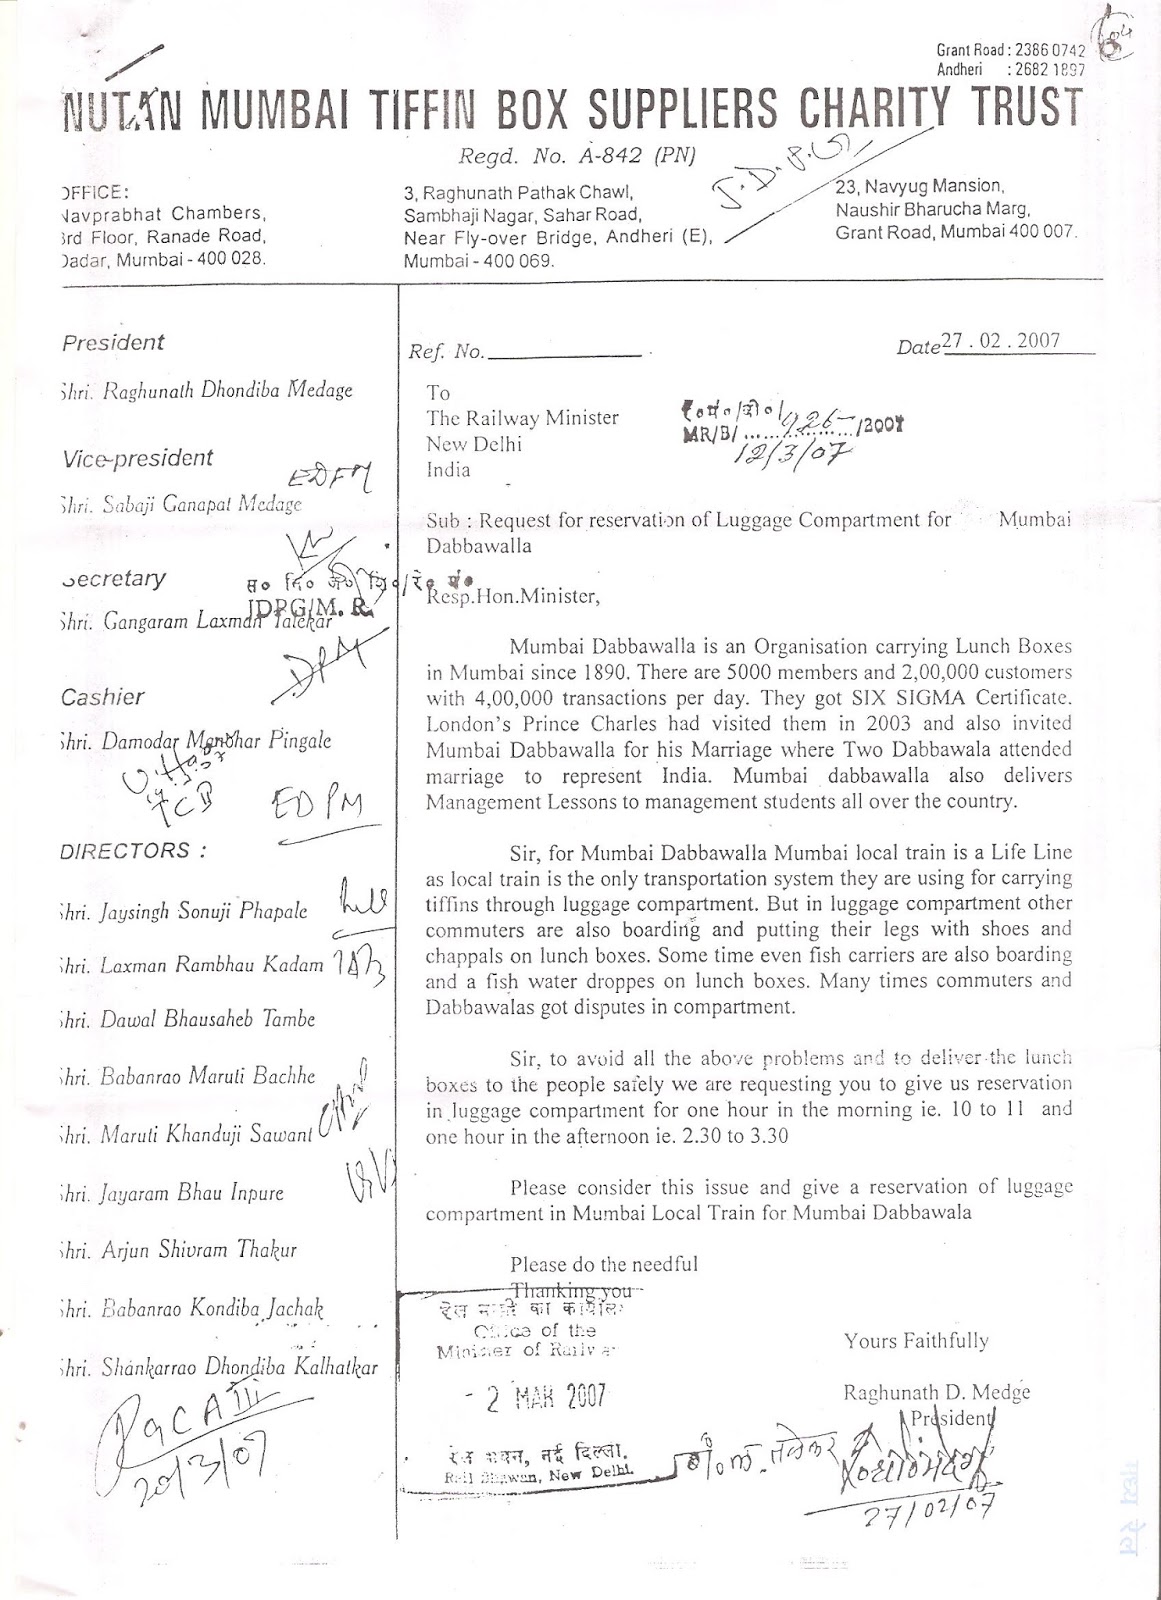 Grant Road : 2386 0742
Andheri : 2682 1897
NUTAN MUMBAI TIFFIN BOX SUPPLIERS CHARITY TRUST
Regd. No. A-842 (PN)
J.D.P.G.
OFFICE:
Navprabhat Chambers,
3rd Floor, Ranade Road,
Dadar, Mumbai - 400 028.
3, Raghunath Pathak Chawl,
Sambhaji Nagar, Sahar Road,
Near Fly-over Bridge, Andheri (E),
Mumbai - 400 069.
23, Navyug Mansion,
Naushir Bharucha Marg,
Grant Road, Mumbai 400 007.
President
Shri. Raghunath Dhondiba Medage
Vice-president
EDFM
Shri. Sabaji Ganapat Medage
Secretary
JDPG/M. R.
Shri. Gangaram Laxman Talekar
DPM
Cashier
Shri. Damodar Manohar Pingale
EDPM
DIRECTORS :
Shri. Jaysingh Sonuji Phapale
Shri. Laxman Rambhau Kadam
Shri. Dawal Bhausaheb Tambe
Shri. Babanrao Maruti Bachhe
Shri. Maruti Khanduji Sawant
Shri. Jayaram Bhau Inpure
Shri. Arjun Shivram Thakur
Shri. Babanrao Kondiba Jachak
Shri. Shankarrao Dhondiba Kalhatkar
20/3/07
Ref. No.
Date 27 . 02 . 2007
To
The Railway Minister
New Delhi
India
MR/B/ 926 /2007
12/3/07
Sub : Request for reservation of Luggage Compartment for Mumbai
Dabbawalla
Resp.Hon.Minister,
Mumbai Dabbawalla is an Organisation carrying Lunch Boxes
in Mumbai since 1890. There are 5000 members and 2,00,000 customers
with 4,00,000 transactions per day. They got SIX SIGMA Certificate.
London's Prince Charles had visited them in 2003 and also invited
Mumbai Dabbawalla for his Marriage where Two Dabbawala attended
marriage to represent India. Mumbai dabbawalla also delivers
Management Lessons to management students all over the country.
Sir, for Mumbai Dabbawalla Mumbai local train is a Life Line
as local train is the only transportation system they are using for carrying
tiffins through luggage compartment. But in luggage compartment other
commuters are also boarding and putting their legs with shoes and
chappals on lunch boxes. Some time even fish carriers are also boarding
and a fish water droppes on lunch boxes. Many times commuters and
Dabbawalas got disputes in compartment.
Sir, to avoid all the above problems and to deliver the lunch
boxes to the people safely we are requesting you to give us reservation
in luggage compartment for one hour in the morning ie. 10 to 11 and
one hour in the afternoon ie. 2.30 to 3.30
Please consider this issue and give a reservation of luggage
compartment in Mumbai Local Train for Mumbai Dabbawala
Please do the needful
Thanking you
Office of the
Minister of Railway
- 2 MAR 2007
रेल भवन, नई दिल्ली.
Rail Bhawan, New Delhi.
Yours Faithfully
Raghunath D. Medge
President
27/02/07